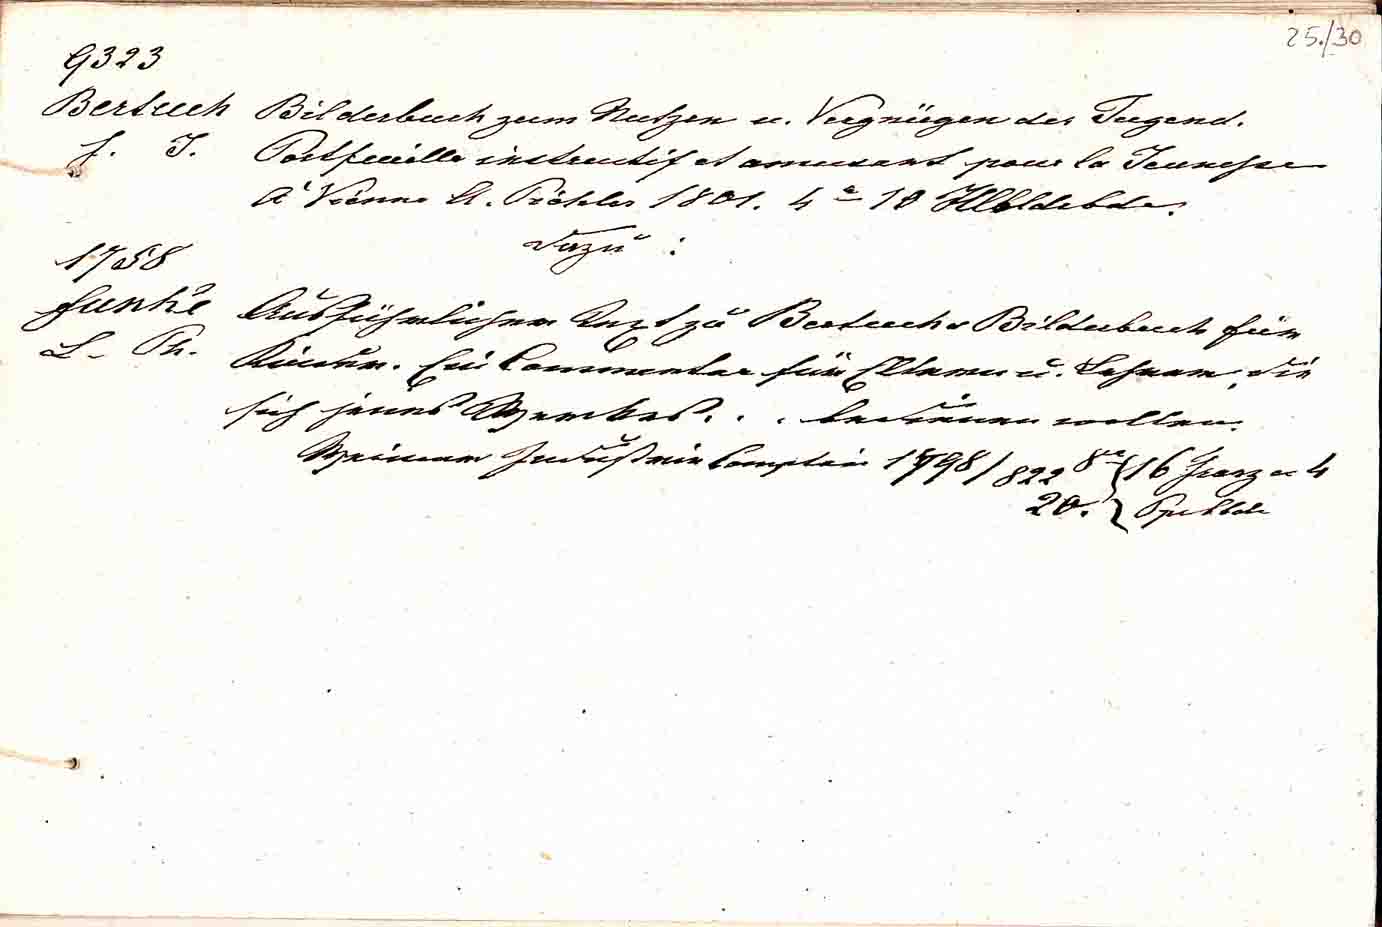 25./30
9323
Bertuch Bilderbuch zum Nutzen u. Vergnügen der Jugend.
F. J. Portfeuille instructif et amusant pour la Jeunesse
à Vienne A. Pichler 1801. 4° 10 Hlbldrbde.
Dazu :
1758
Funke Ausführlicher Text zu Bertuchs Bilderbuch für
L. Ph. Kinder. Ein Commentar für Eltern u. Lehrer, die
sich jenes Werkes . . . bedienen wollen.
Weimar Industrie Comptoir 1798/822 8° 16 Franz u 4
20. Ppbbde